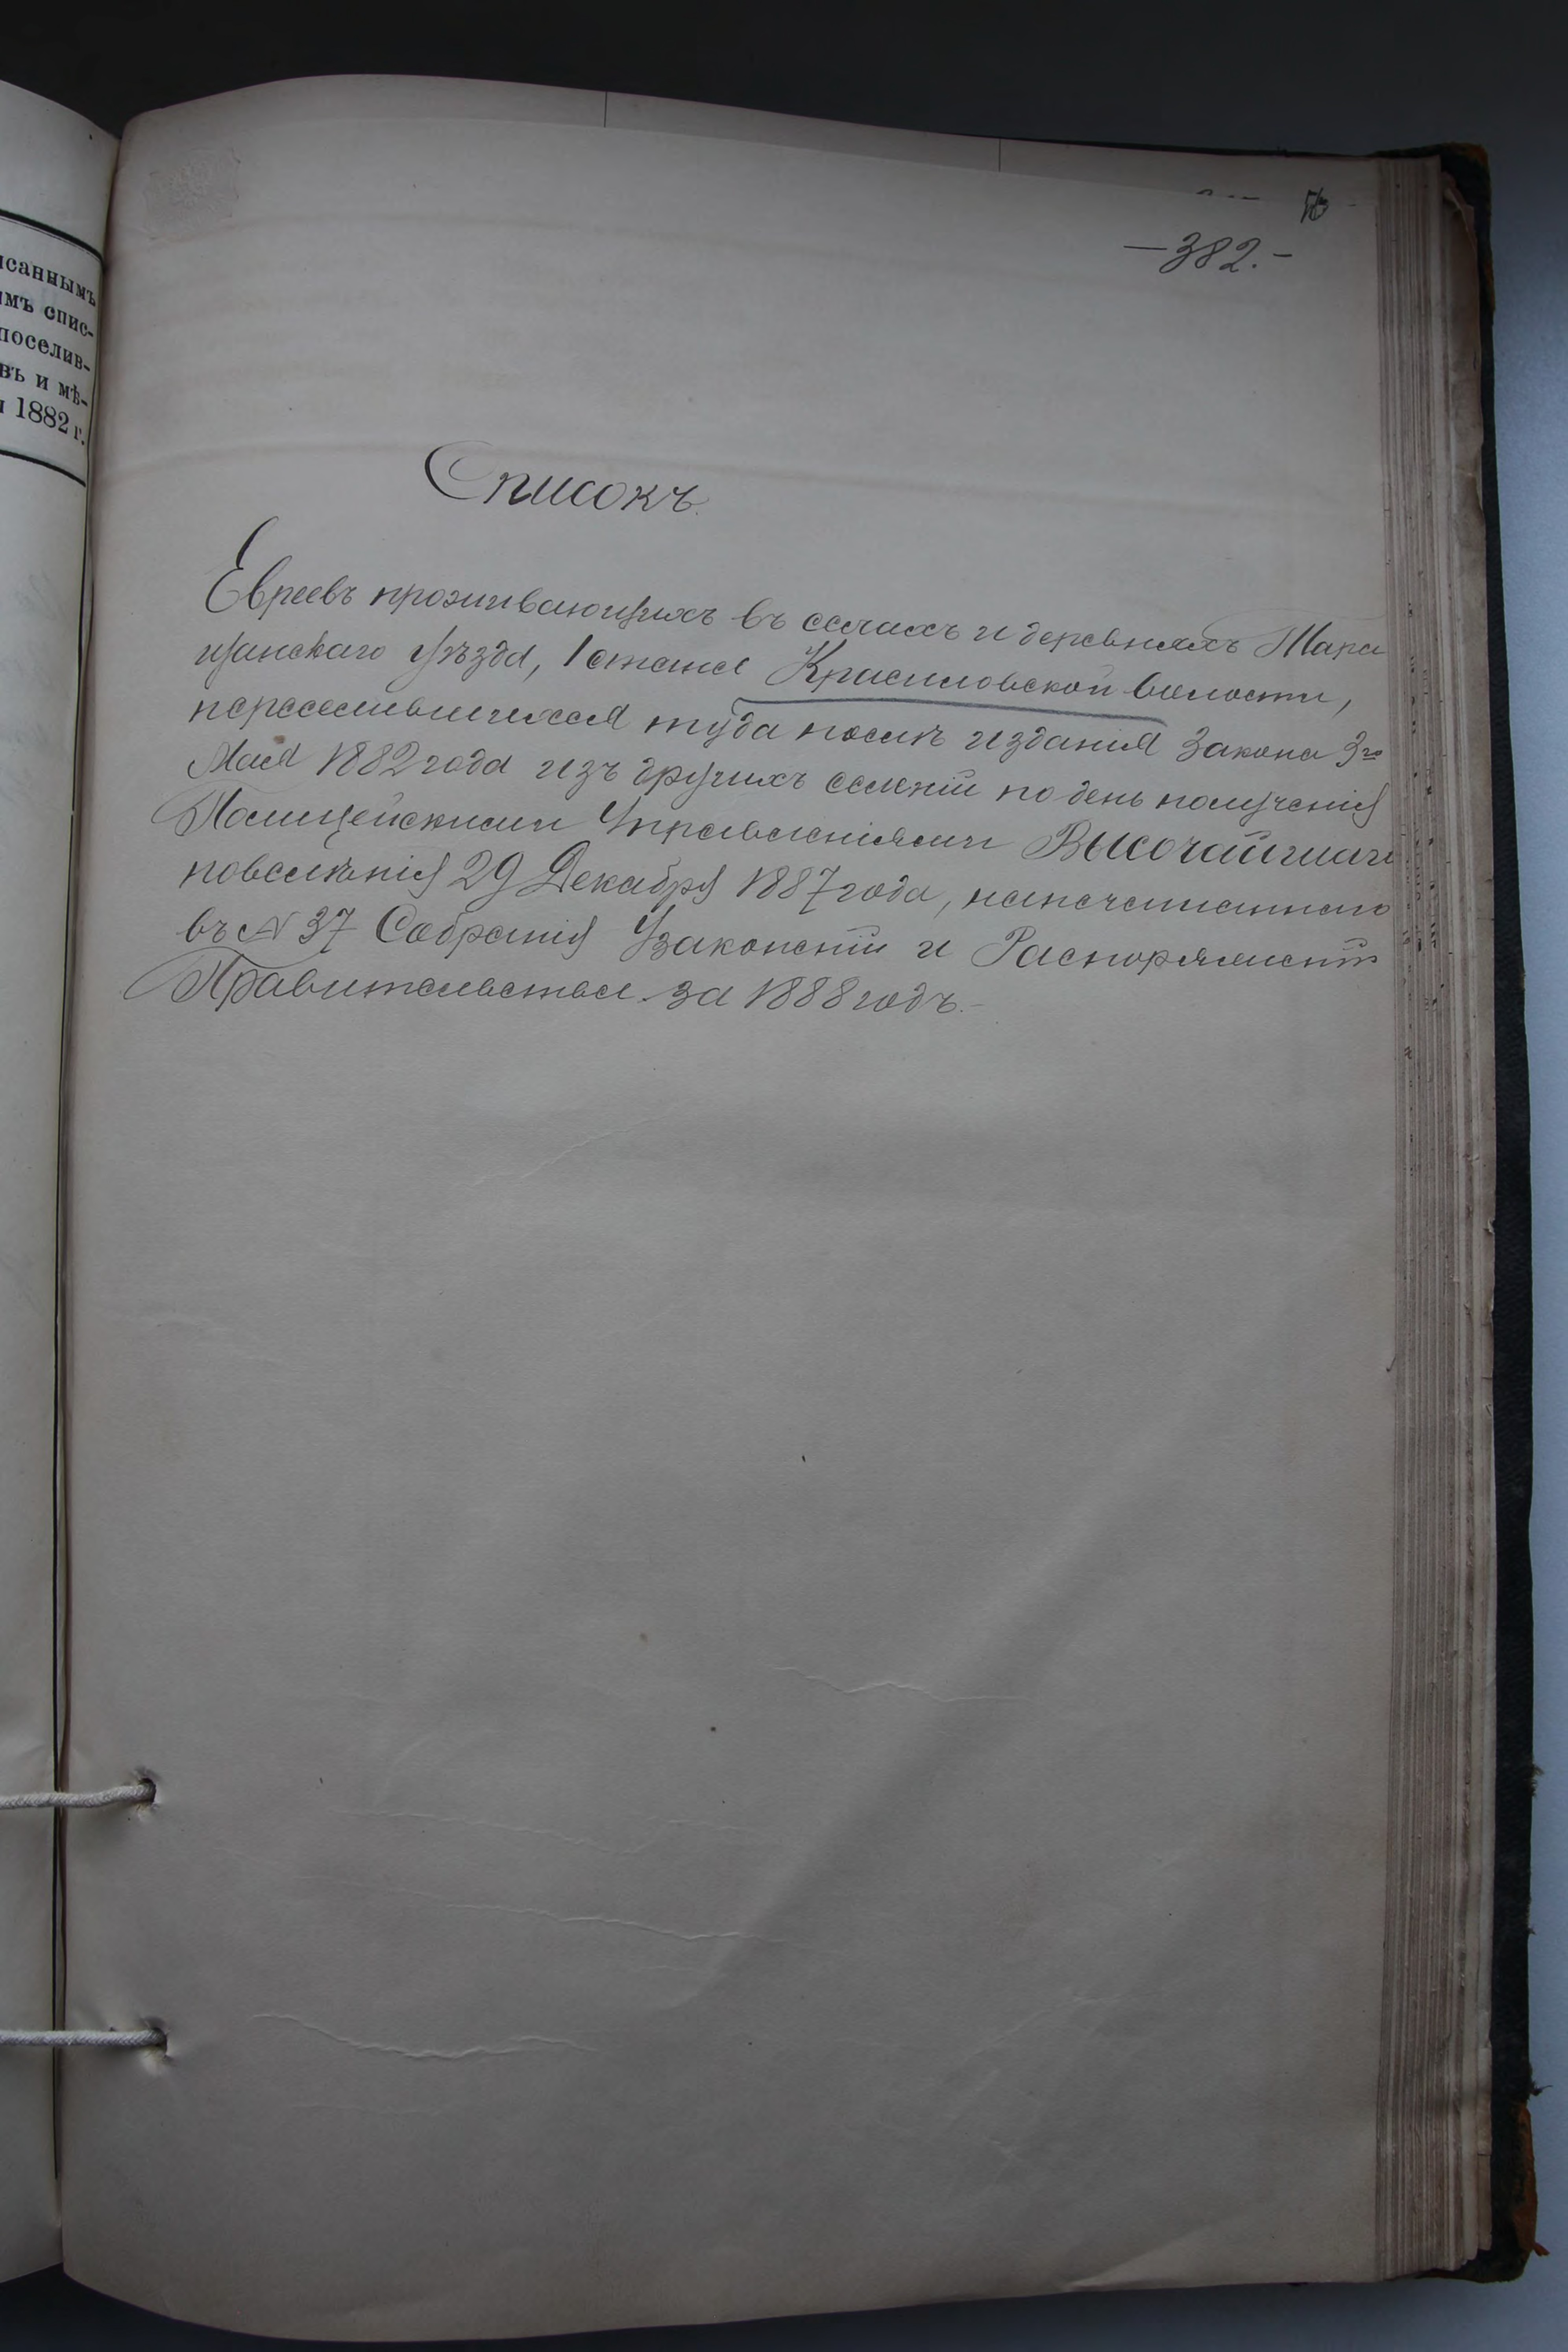 исаннымъ
имъ спис-
поселив-
въ и мѣ-
1882 г.
—382.—
Списокъ.
Евреевъ проживающихъ въ селахъ и деревняхъ Тара
щанскаго уѣзда, 1 стана Красиловской волости,
переселившихся туда послѣ изданія Закона 3го
Мая 1882 года изъ другихъ селеній по день полученія
Полицейскими Управленіями Высочайшаго
повелѣнія 29 Декабря 1887 года, напечатаннаго
въ № 37 Собранія Узаконеній и Распоряженій
Правительства за 1888 годъ.—